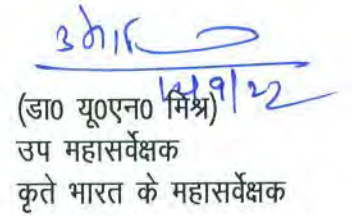 14/9/22
(डा० यू०एन० मिश्र)
उप महासर्वेक्षक
कृते भारत के महासर्वेक्षक